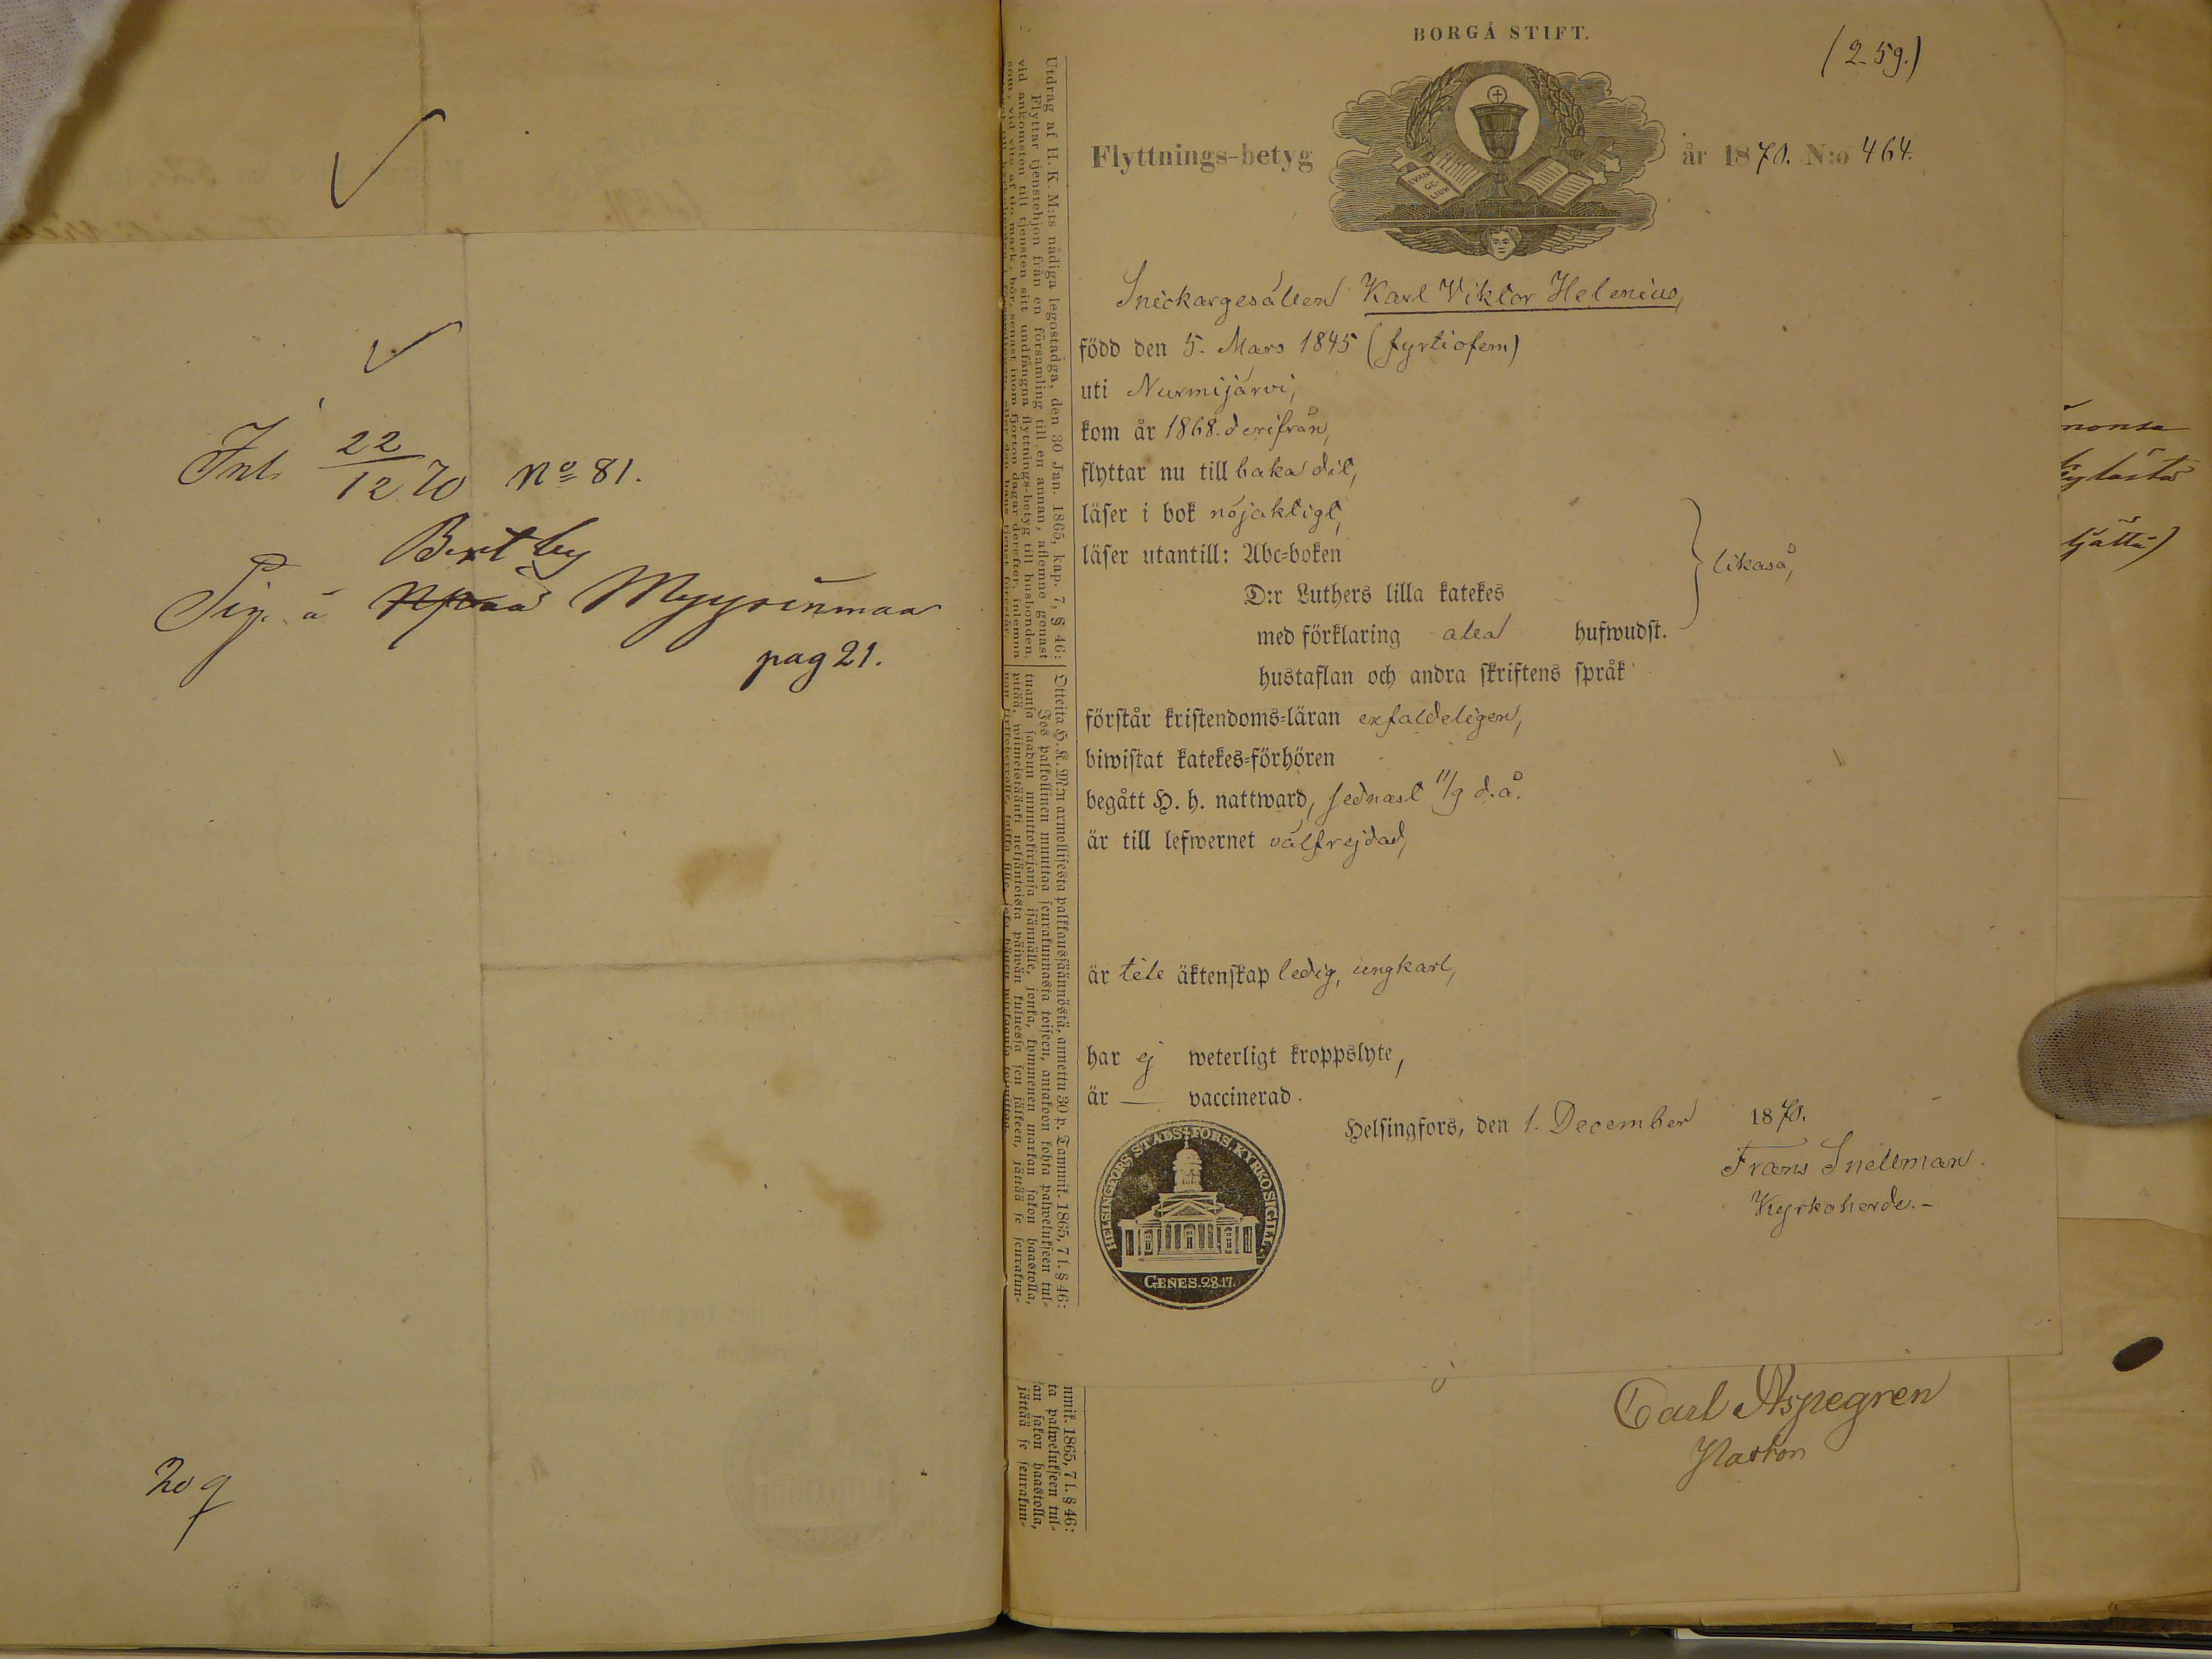 Inl. 22/12 70 No 81.
Bertby
Sig. å Myyrinmaa
pag 21.
209
BORGÅ STIFT.
(259.)
Flyttnings-betyg
EVAN
GE-
LIUM
år 1870. N:o 464.
Snickargesällen Karl Viktor Helenius,
född den 5. Mars 1845 (fyrtiofem)
uti Nurmijärvi,
kom år 1868. derifrån,
flyttar nu till baka dit,
läser i bok nöjaktigt,
läser utantill: Abc=boken
D:r Luthers lilla katekes
med förklaring alla hufwudst.
hustaflan och andra skriftens språk
likaså,
förstår kristendoms=läran enfaldeligen,
biwistat katekes=förhören
begått H. h. nattward, sednast 11/9 d.å.
är till lefwernet välfrejdad,
är till äktenskap ledig, ungkarl,
har ej weterligt kroppslyte,
är — vaccinerad.
Helsingfors, den 1. December 1870.
Frans Snellman.
Kyrkoherde.-
HELSINGFORS STADS FÖRS. KYRKOSIGILL.
GENES.28.17.
Utdrag af H. K. M:ts nådiga legostadga, den 30 Jan. 1865, kap. 7, § 46:
Flyttar tjenstehjon från en församling till en annan, aflemne genast
vid ankomsten till tjensten sitt undfångna flyttnings-betyg till husbonden,
som, vid vite af tio mark, bör, senast inom fjorton dagar derefter, inlemna
Otteita H. K. M:n armollisesta palkkaussäännöstä, annettu 30 p. Tammik. 1865, 7 l. § 46:
Jos palkollinen muuttaa seurakunnasta toiseen, antakoon kohta palwelukseen tul=
tuansa saadun muuttokirjansa isännälle, jonka, kymmenen markan sakon haastolla,
pitää, wiimeistäänki neljäntoista päiwän kuluessa sen jälkeen, jättää se seurakun=
mmik. 1865, 7 l. § 46:
ta palwelukseen tul=
an sakon haastolla,
jättää se seurakun=
Carl Aspegren
Pastor